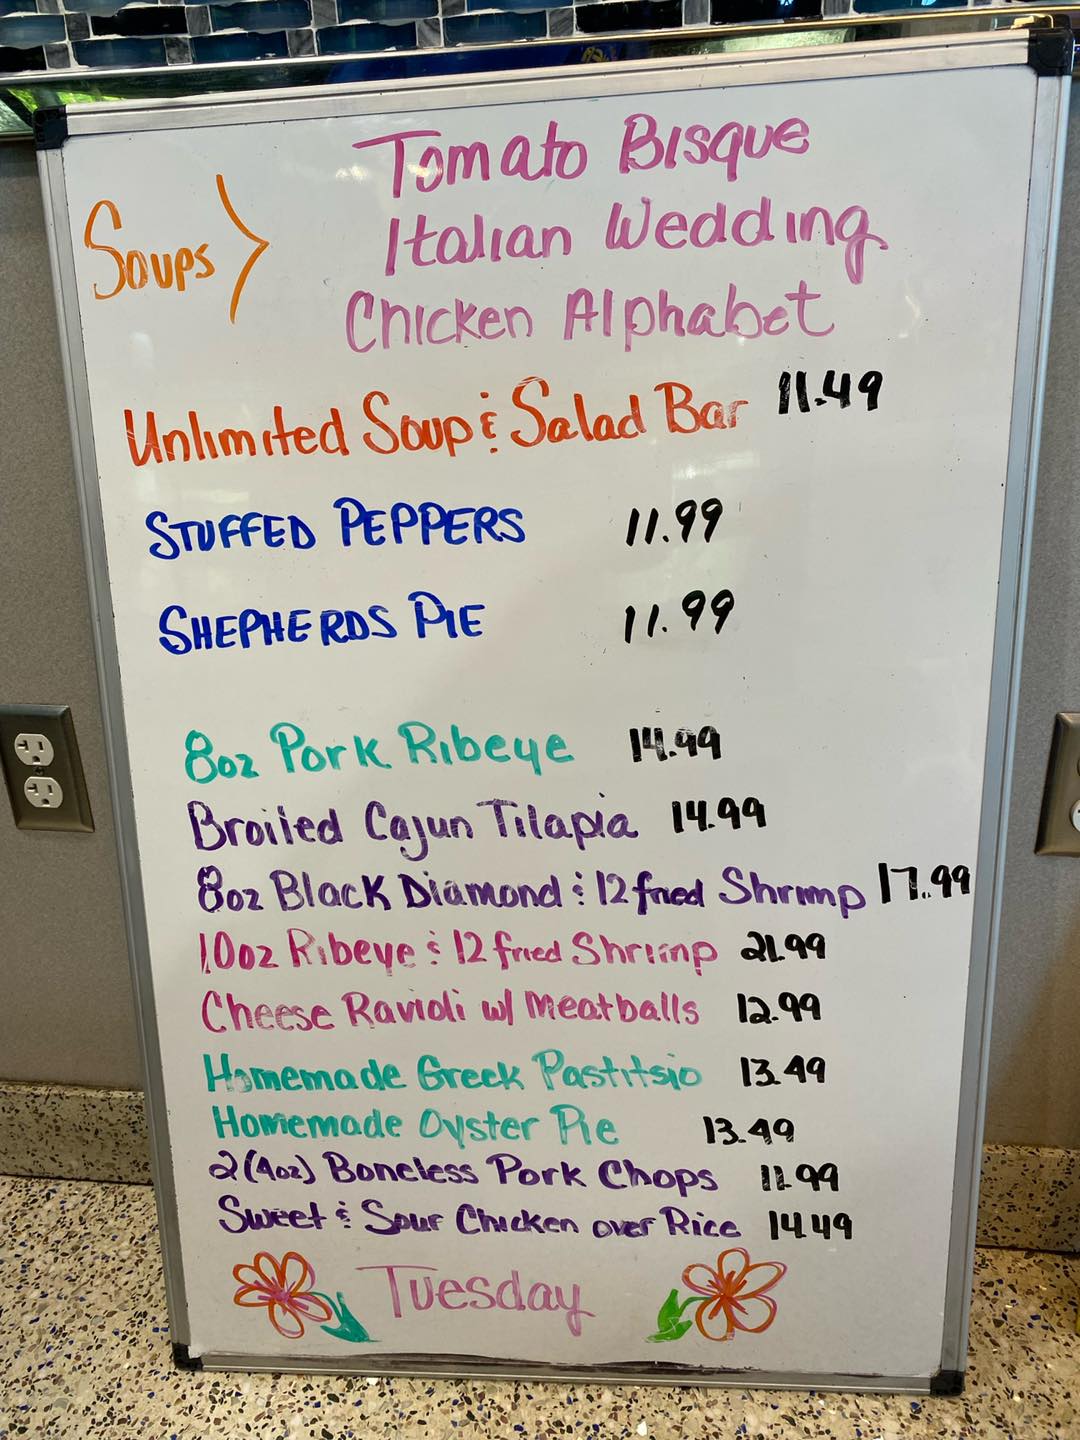 Soups >
Tomato Bisque
Italian Wedding
Chicken Alphabet
Unlimited Soup & Salad Bar 11.49
STUFFED PEPPERS 11.99
SHEPHERDS PIE 11.99
8oz Pork Ribeye 14.99
Broiled Cajun Tilapia 14.99
8oz Black Diamond & 12 fried Shrimp 17.99
10oz Ribeye & 12 fried Shrimp 21.99
Cheese Ravioli w/ Meatballs 12.99
Homemade Greek Pastitsio 13.49
Homemade Oyster Pie 13.49
2(4oz) Boneless Pork Chops 11.99
Sweet & Sour Chicken over Rice 14.49
Tuesday